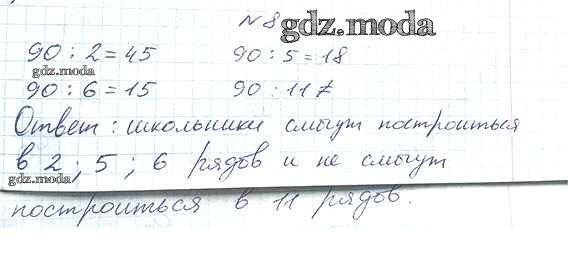 № 8 gdz.moda
90 : 2 = 45 90 : 5 = 18
gdz.moda
90 : 6 = 15 90 : 11 ≠
Ответ: школьники смогут построиться
в 2; 5; 6 рядов и не смогут
gdz.moda
построиться в 11 рядов.